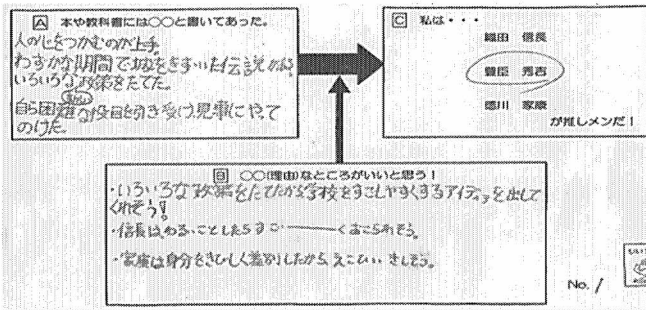 A 本や教科書には○○と書いてあった。
人の心をつかむのが上手。
わずかな期間で城をきずいた伝説がある
いろいろな政策をたてた。
自ら困難な役目を引き受け、見事にやって
のけた。
C 私は・・・
織田 信長
豊臣 秀吉
徳川 家康
が推しメンだ！
B ○○(理由)なところがいいと思う！
・いろいろな政策をたてたから学校をすごしやすくするアイディアを出して
くれそう!
・信長は、わるいことしたらすご――くおこられそう。
・家康は身分をきびしく差別したから、えこひいきしそう。
No. /